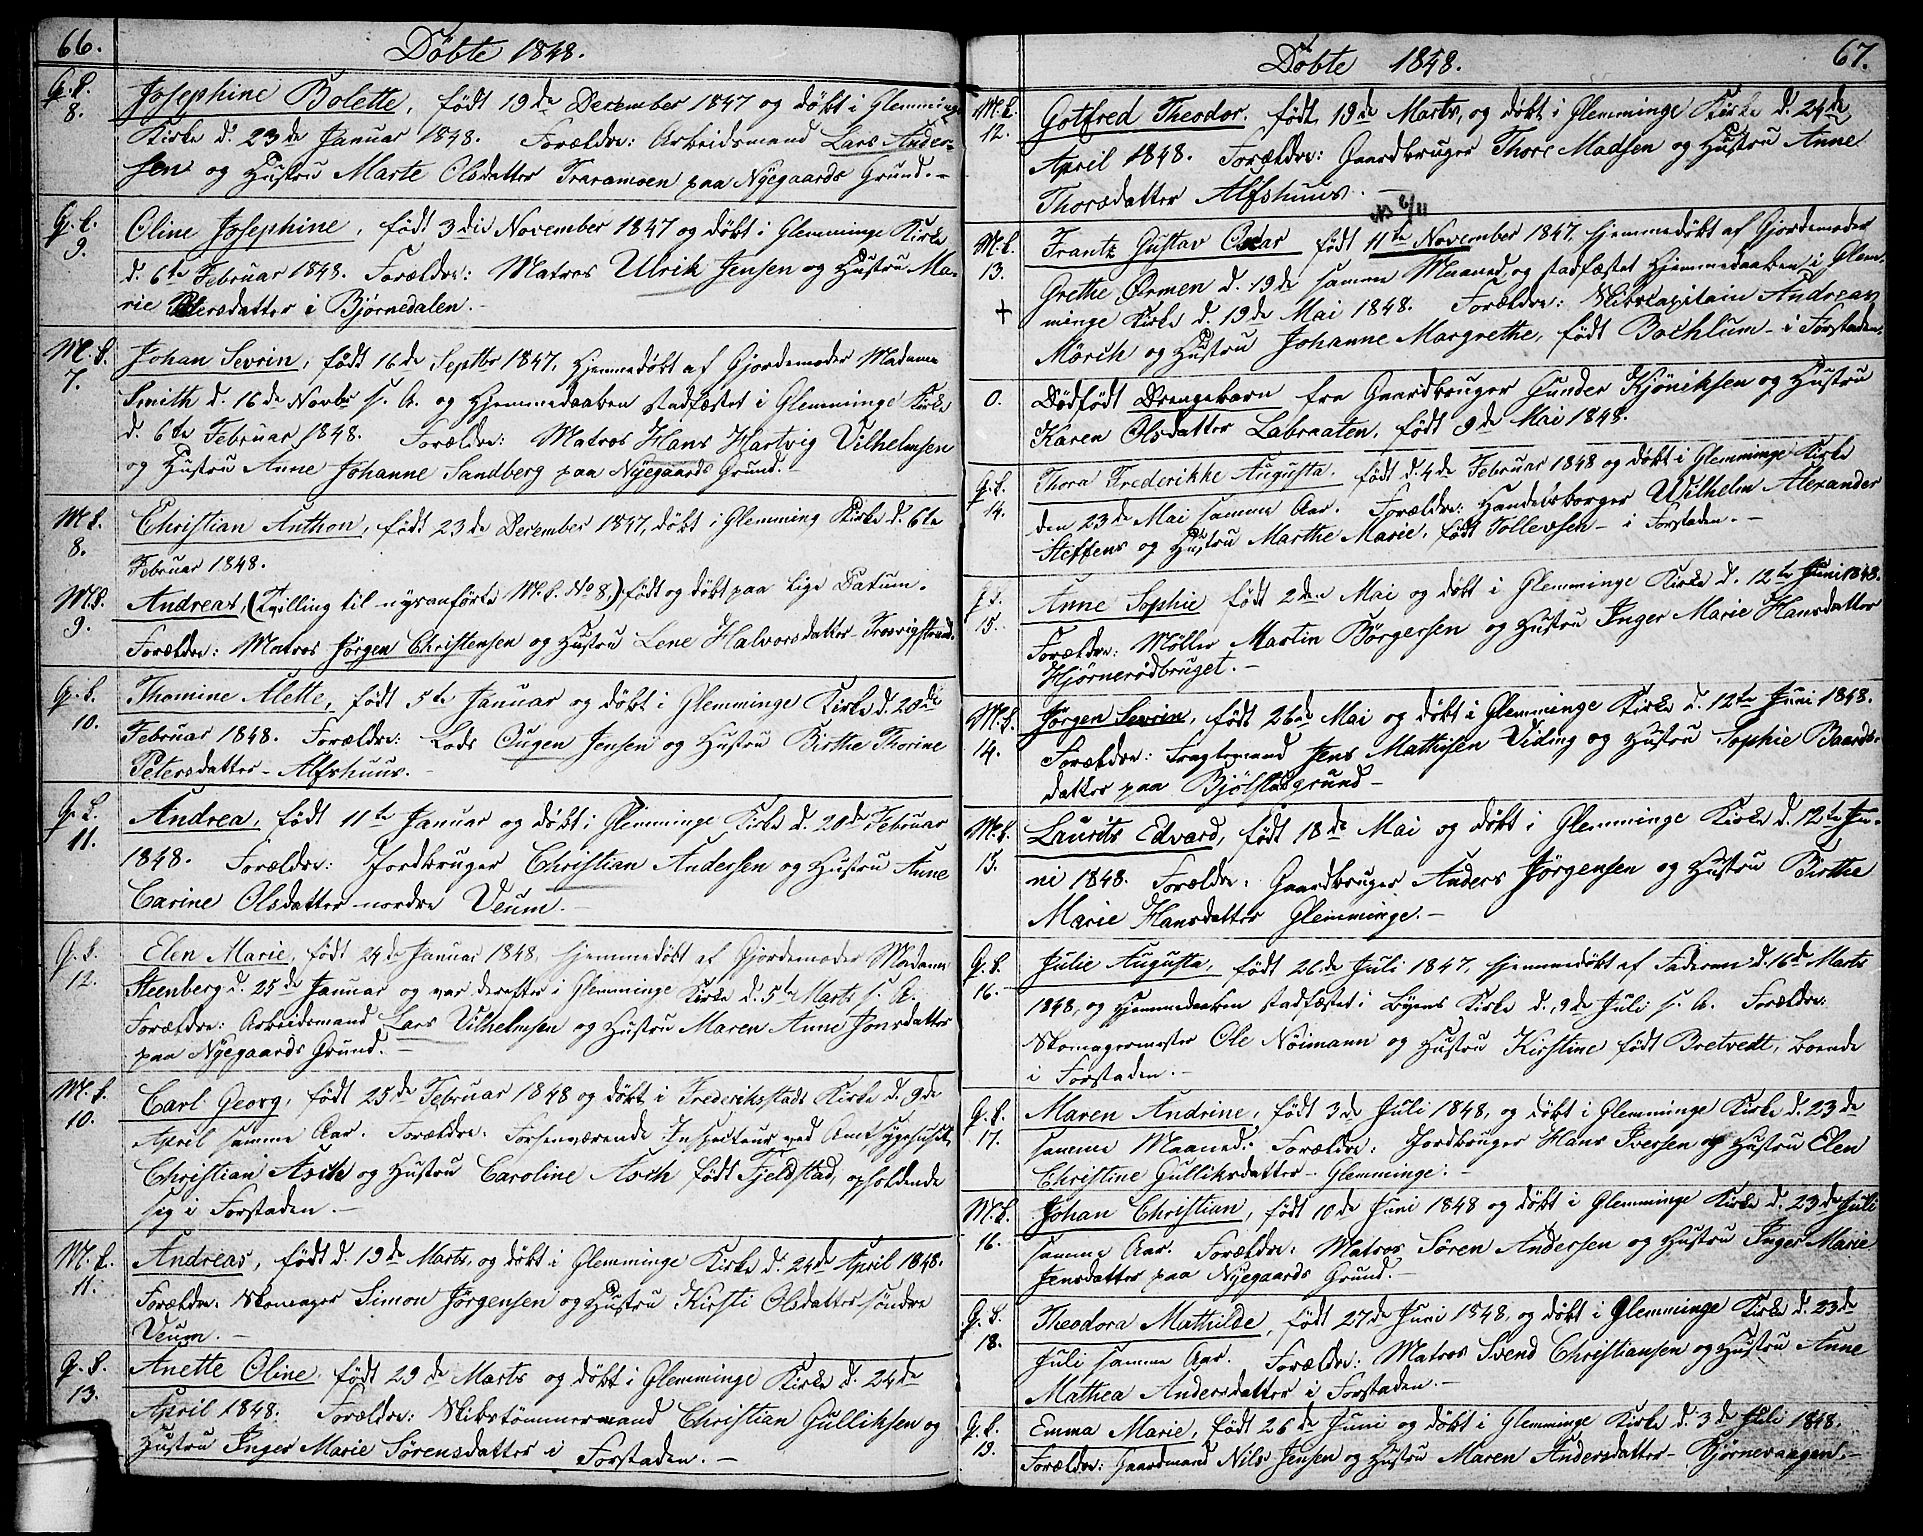 66.
Döbte 1848.
G. L.
8.
Josephine Bolette, född 19de December 1847 og döbt i Glemminge
Kirke d. 23de Januar 1848. Forældre: Arbeidsmand Lars Ander-
sen og Hustru Marte Olsdatter Traramoen paa Nyegaards Grund. -
G. L.
9.
Oline Josephine, födt 3die November 1847 og döbt i Glemminge Kirke
d. 6te Februar 1848. Forældre: Matros Ulrik Jensen og Hustru Ma-
rie Petersdatter i Björnedalen. -
M. L.
7.
Johan Sevrin, födt 16de Septbr 1847, Hjemmedöbt af Gjordemoder Madame
Smith d. 16de Novbr s. A. og Hjemmedaaben stadfæstet i Glemminge Kirke
d. 6te Februar 1848. Forældre: Matros Hans Hartvig Vilhelmsen
og Hustru Anne Johanne Sandberg paa Nyegaards Grund. -
M. L.
8.
Christian Anthon, födt 23de December 1847, döbt i Glemming Kirke d. 6te
Februar 1848.
M. L.
9.
Andreas, (Tvilling til nysanförte M. L. No 8,) födt og döbt paa lige Datum.
Forældre: Matros Jörgen Christensen og Hustru Lene Halvorsdatter Trosvigstrand.
G. L.
10.
Thomine Alette, födt 5te Januar og döbt i Glemminge Kirke d. 20de
Februar 1848. Forældre: Lods Eugen Jensen og Hustru Birthe Thorine
Petersdatter - Alfshuus. -
G. L.
11.
Andrea, födt 11te Januar og döbt i Glemminge Kirke d. 20de Februar
1848. Forældre: Jordbruger Christian Andersen og Hustru Anne
Carine Olsdatter nordre Veum. -
G. L.
12.
Elen Marie, födt 24de Januar 1848, Hjemmedöbt af Gjordemoder Madame
Steenberg d. 25de Januar og var derefter i Glemminge Kirke d. 5te Marts s. A.
Forældre: Arbeidsmand Lars Vilhelmsen og Hustru Maren Anne Jonsdatter
paa Nyegaards Grund. -
M. L.
10.
Carl Georg, födt 25de Februar 1848 og döbt i Frederiksstads Kirke d. 9de
April samme Aar. Forældre: Forhenværende Inspecteur ved Amtssygehuset,
Christian Asch og Hustru Caroline Asch födt Fjeldstad, opholdende
sig i Forstaden. -
M. L.
11.
Andreas, födt d. 19de Marts, og döbt i Glemminge Kirke d. 24de April 1848.
Forældre: Skomager Simon Jörgensen og Hustru Kirsti Olsdatter söndre
Veum. -
G. L.
13.
Anette Oline, födt 29de Marts og döbt i Glemminge Kirke d. 24de
April 1848. Forældre: Skibstömmermand Christian Gulliksen og
Hustru Inger Marie Sörensdatter i Forstaden. -
Döbte 1848.
67.
M. L.
12.
Gotfred Theodor, födt 19de Marts, og döbt i Glemminge Kirke d. 24de
April 1848. Forældre: Gaardbruger Thore Madsen og Hustru Anne
Thorsdatter Alfshuus. -
6/11
M. L.
13.
+
Frantz Gustav Oscar födt 11te November 1847, hjemmedöbt af Gjordemoder
Grethe Ormen d. 19de samme Maaned og stadfæstet Hjemmedaaben i Glem-
minge Kirke d. 19de Mai 1848. Forældre: Skibscapitain Andreas
Mörch og Hustru Johanne Margrethe, födt Bochlum - i Forstaden.
0.
Dödfödt Drengebarn fra Gaardbruger Gunder Kjöniksen og Hustru
Karen Olsdatter Labraaten, födt 9de Mai 1848.
G. L.
14.
Thora Frederikke Augusta, födt d. 4de Februar 1848 og döbt i Glemminge Kirke
den 23de Mai samme Aar. Forældre: Handelsborger Wilhelm Alexander
Steffens og Hustru Marthe Marie, födt Tollevsen - i Forstaden. -
G. L.
15.
Anne Sophie födt 2den Mai og döbt i Glemminge Kirke d. 12te Juni 1848.
Forældre: Möller Martin Börgersen og Hustru Inger Marie Hansdatter
Hjörnerödbruget. -
M. L.
14.
Jörgen Sevrin, födt 26de Mai og döbt i Glemminge Kirke d. 12te Juni 1848.
Forældre: Fragtemand Jens Mathisen Viding og Hustru Sophie Baards-
datter paa Bjölstadgrund -
M. L.
15.
Laurits Edvard, födt 18de Mai og döbt i Glemminge Kirke d. 12te Ju-
ni 1848. Forældre: Gaardbruger Anders Jörgensen og Hustru Birthe
Marie Hansdatter Glemminge. -
G. L.
16.
Julie Augusta, födt 26de Juli 1847, hjemmedöbt af Faderen d. 16de Marts
1848, og Hjemmedaaben stadfæstet i Byens Kirke d. 9de Juli s. A. Forældre:
Skomagermester Ole Nöimann og Hustru Kirstine födt Bretvedt, boende
i Forstaden. -
G. L.
17.
Maren Andrine, födt 3de Juli 1848, og döbt i Glemminge Kirke d. 23de
samme Maaned. Forældre: Jordbruger Hans Iversen og Hustru Elen
Christine Gulliksdatter - Glemminge. -
M. L.
16.
Johan Christian, födt 10de Juni 1848 og döbt i Glemminge Kirke d. 23de Juli
samme Aar. Forældre: Matros Sören Andersen og Hustru Inger Marie
Jensdatter paa Nyegaards Grund. -
G. L.
18.
Theodora Mathilde, födt 27de Juni 1848, og döbt i Glemminge Kirke d. 23de
Juli samme Aar. Forældre: Matros Svend Christiansen og Hustru Anne
Mathea Andersdatter i Forstaden. -
G. L.
19.
Emma Marie, födt 26de Juni og döbt i Glemminge Kirke d. 3de Juli 1848.
Forældre: Gaardmand Nils Jensen og Hustru Maren Andersdatter - Kjörnevaagen. -